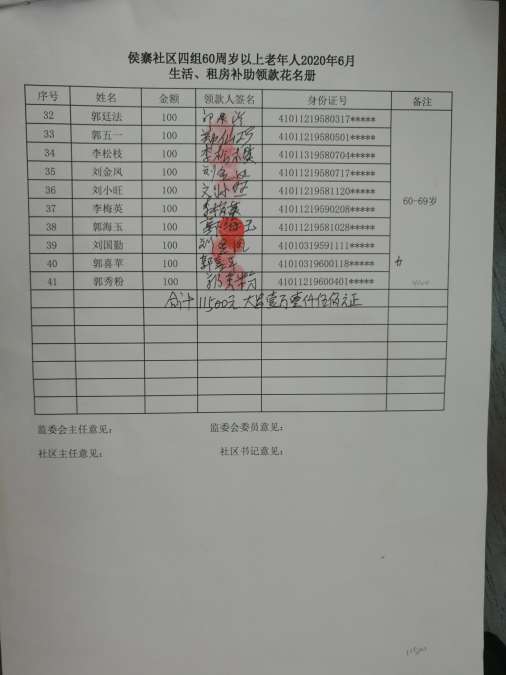 侯寨社区四组60周岁以上老年人2020年6月
生活、租房补助领款花名册
序号 姓名 金额 领款人签名 身份证号 备注
32 郭廷法 100 41011219580317*****
33 郭五一 100 41011219580501*****
34 李松枝 100 李松枝 41011319580704*****
35 刘金凤 100 刘金凤 41011219580717*****
36 刘小旺 100 41011219581120***** 60-69岁
37 李梅英 100 41011219690208*****
38 郭海玉 100 41011219581028*****
39 刘国勤 100 41010319591111*****
40 郭喜苹 100 41010319600118*****
41 郭秀粉 100 41011219600401*****
合计11500元 大写壹万壹仟伍佰元正
监委会主任意见： 监委会委员意见：
社区主任意见： 社区书记意见：